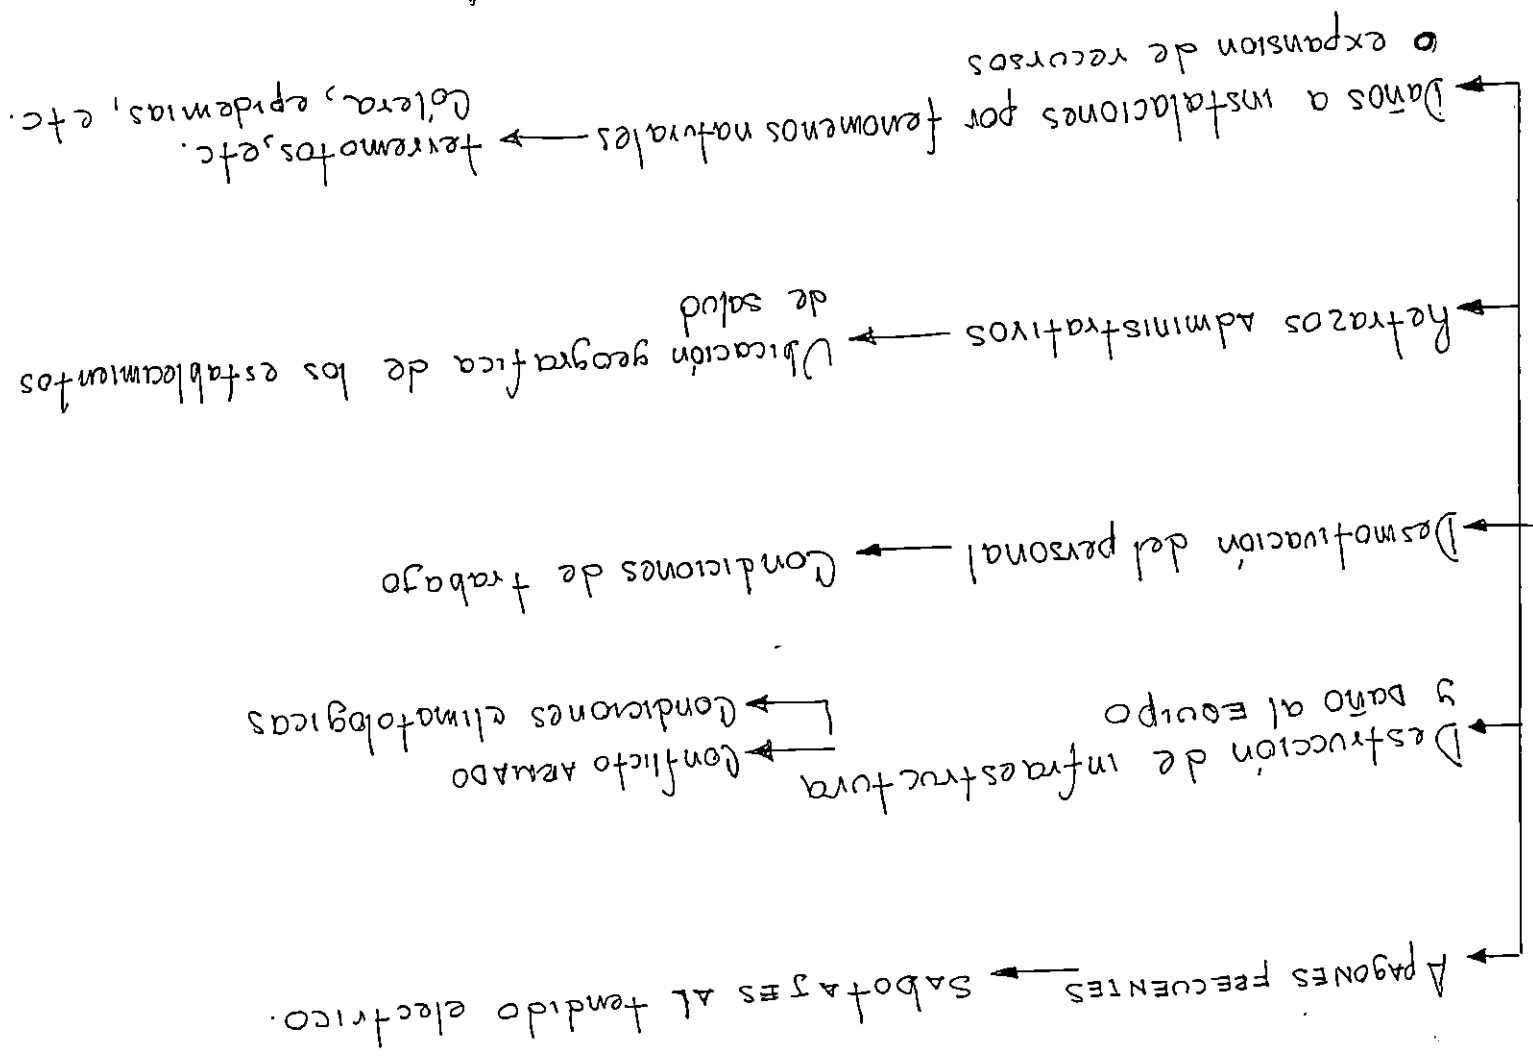 Apagones FRECUENTES → SABOTAJES AL tendido electrico.
Destrucción de infraestructura → Conflicto ARMADO
y DAÑO al EQUIPO → Condiciones climatologicas
Desmotivación del personal → Condiciones de trabajo
Retrazos ADMINISTRATIVOS → Ubicación geografica de los establecimientos
de salud
Daños a instalaciones por fenomenos naturales → terremotos, etc.
o expansion de recursos
Cólera, epidemias, etc.